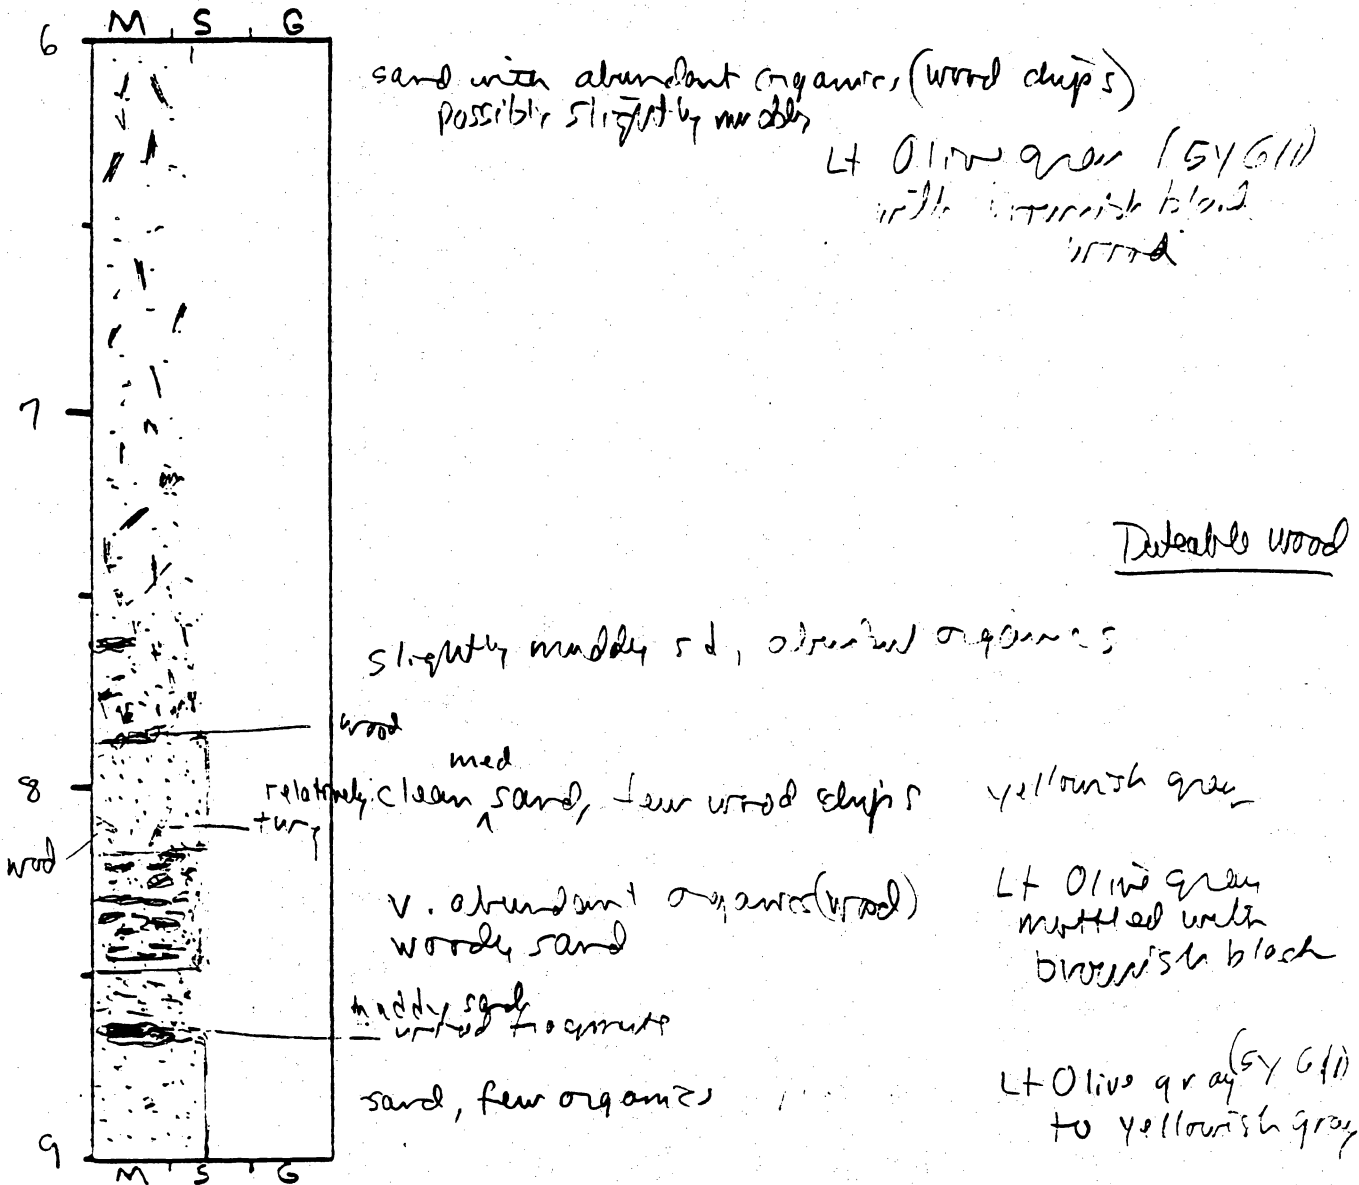 M S G
6
sand with abundant organics (wood chips)
possibly slightly muddy
Lt Olive gray (5Y 6/1)
with brownish black
wood
7
Dateable wood
slightly muddy sd, abundant organics
wood
med
8
relatively clean ^ sand, few wood chips
yellowish gray
wood
v. abundant organics (wood)
woody sand
Lt Olive gray
mottled with
brownish black
muddy sand
wood fragments
sand, few organics
Lt Olive gray (5Y 6/1)
to yellowish gray
9
M S G